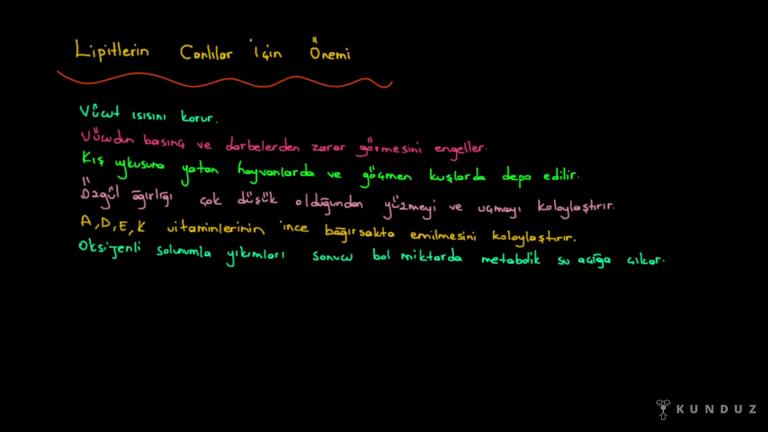 Lipitlerin Canlılar İçin Önemi
Vücut ısısını korur.
Vücudun basınç ve darbelerden zarar görmesini engeller.
Kış uykusuna yatan hayvanlarda ve göçmen kuşlarda depo edilir.
Özgül ağırlığı çok düşük olduğundan yüzmeyi ve uçmayı kolaylaştırır.
A, D, E, K vitaminlerinin ince bağırsakta emilmesini kolaylaştırır.
Oksijenli solunumla yıkımları sonucu bol miktarda metabolik su açığa çıkar.
KUNDUZ